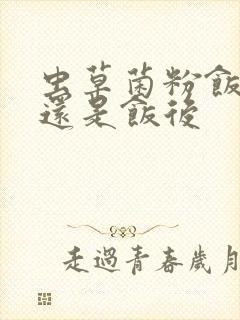 虫草菌粉飯
還是飯後
走過青春歲月